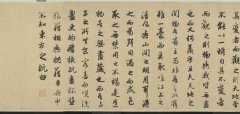 其變者而觀之則天地曾
不能以一瞬自其不變者
而觀之則物與我皆無盡
也而又何羨乎且夫天地之
間物各有主苟非吾之所有
雖一毫而莫取惟江上之
清風與山間之明月耳得
之而為聲目遇之而成色
取之無禁用之不竭是造
物者之無盡藏也而吾與
子之所共食客喜而笑洗
盞更酌肴核既盡杯盤
狼籍相與枕藉乎舟中
不知東方之既白